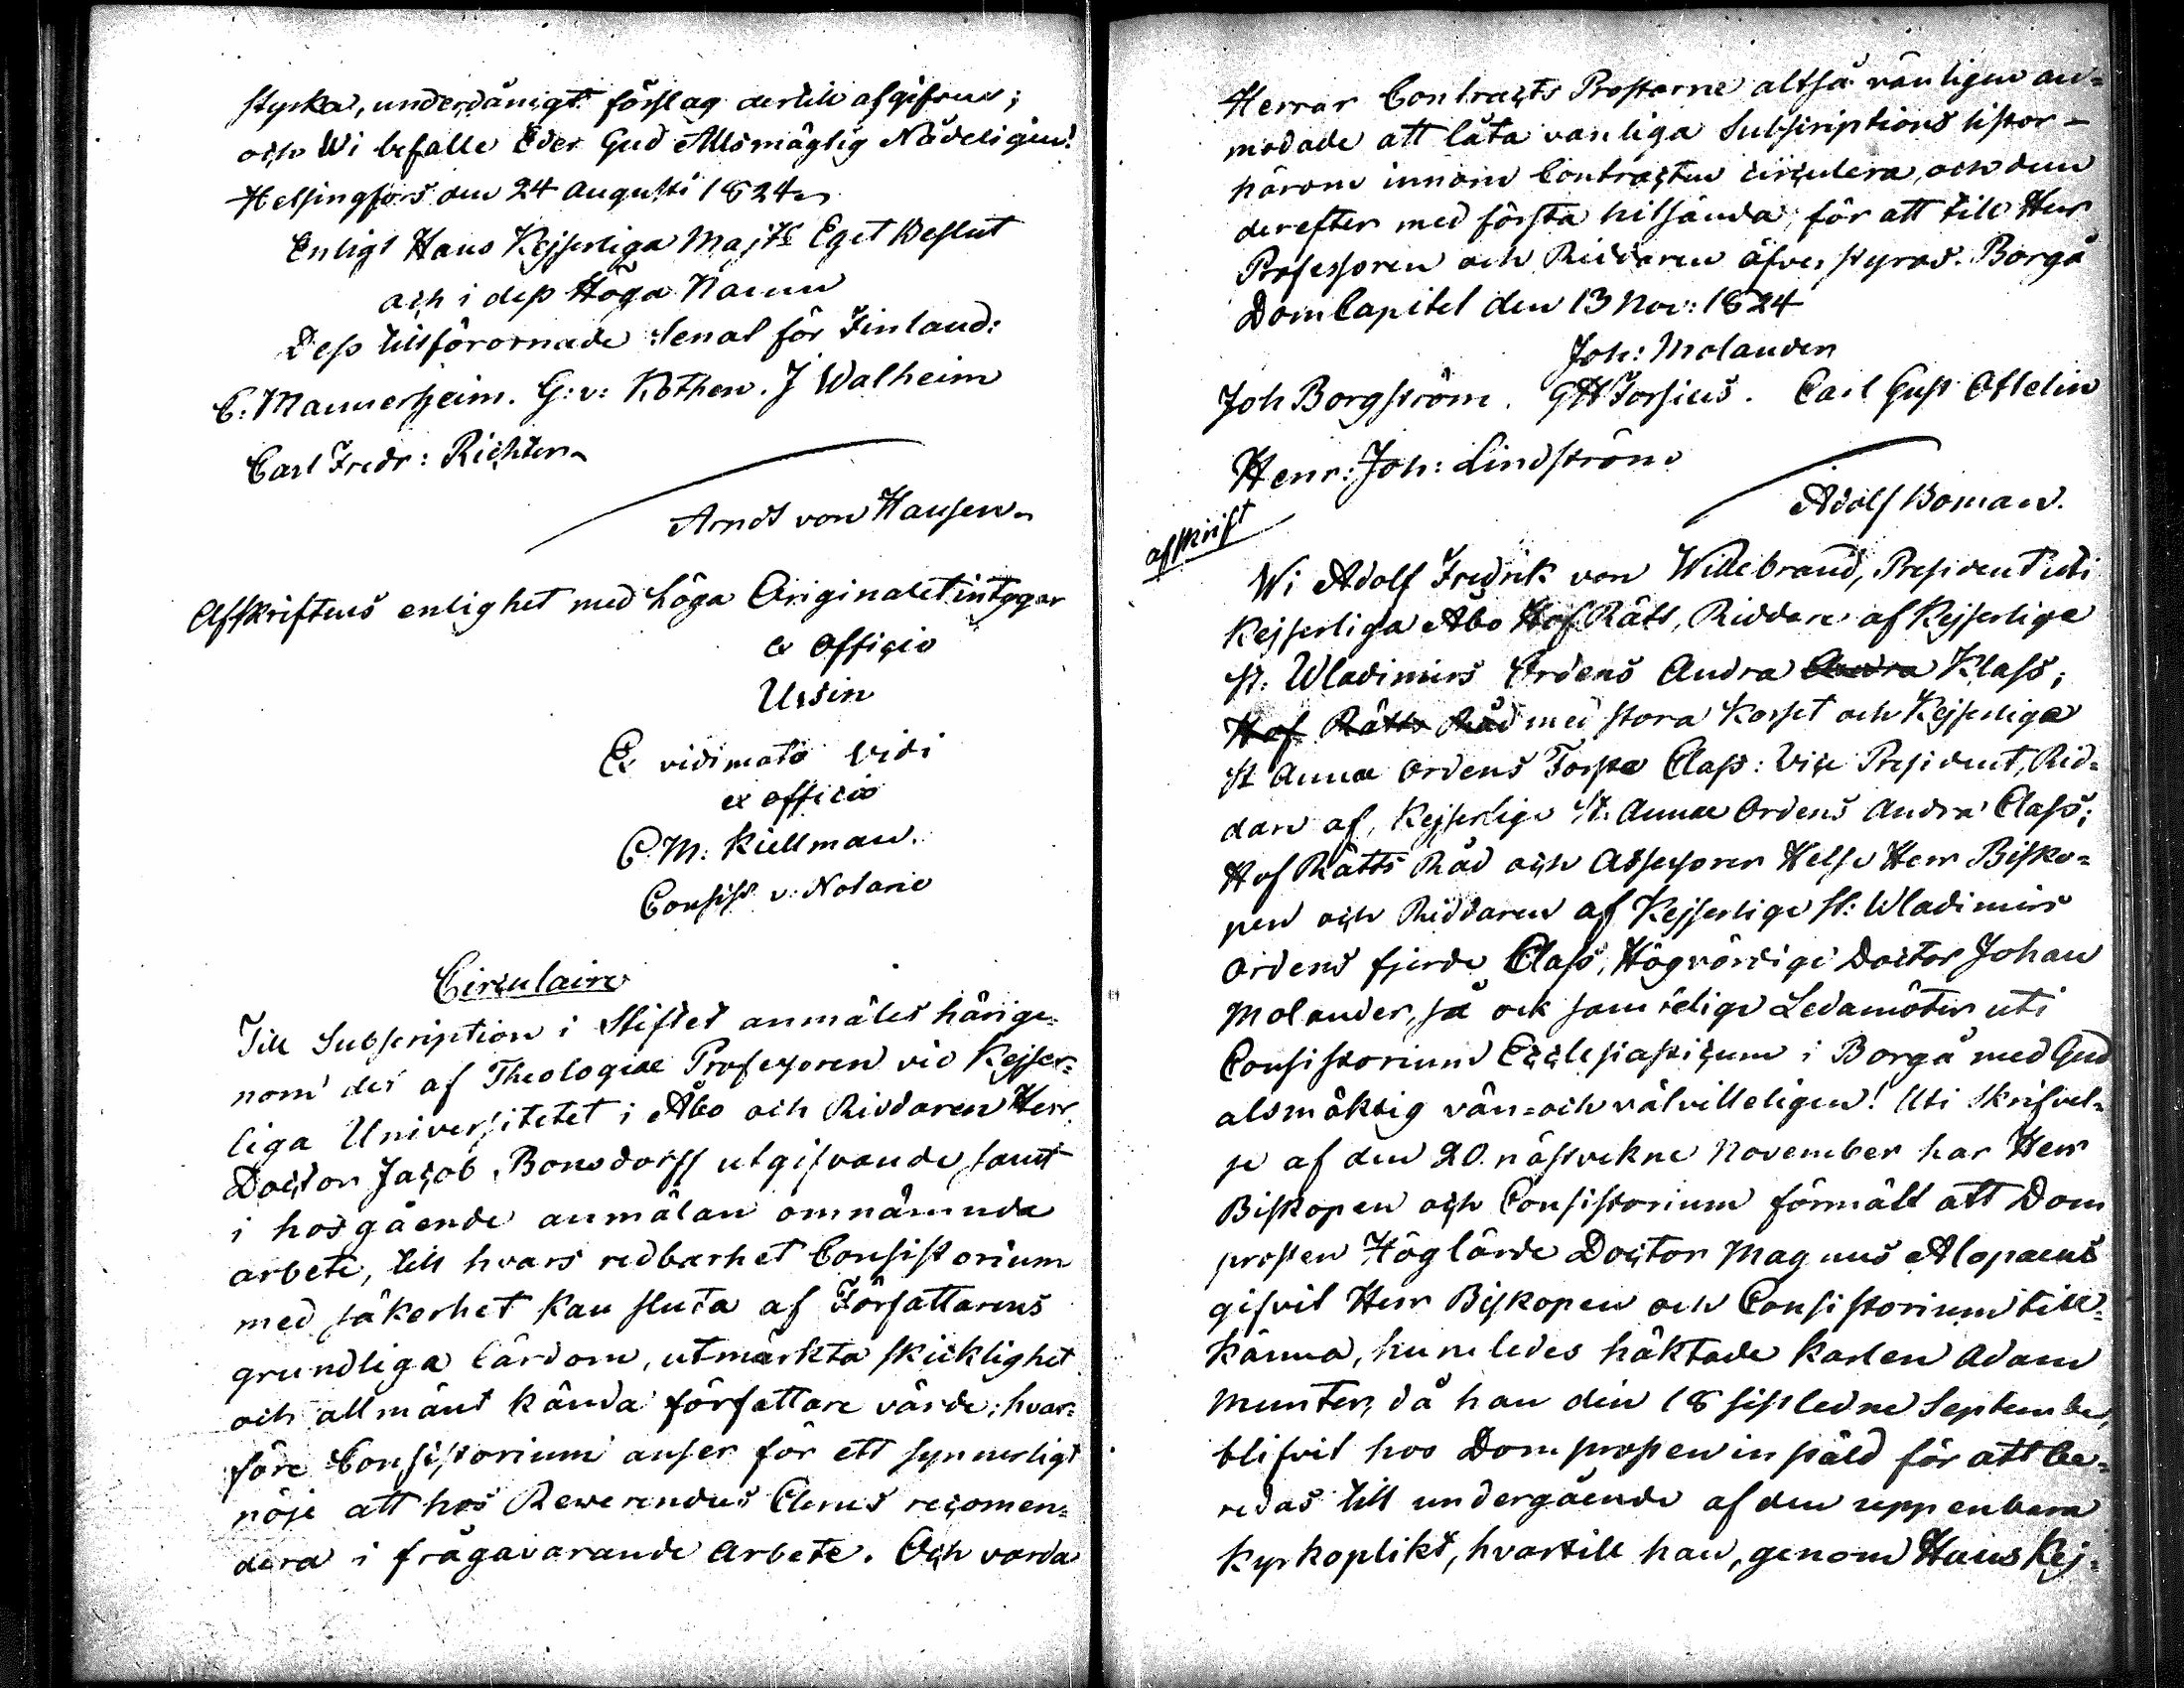 styrka, underdånigt förslag dertill afgifves;
och Wi befalle Eder Gud Allsmägtig Nådeligen!
Helsingfors den 24 Augusti 1824
Enligt Hans Kejserliga Majts Eget Beslut
och i dess Höga Namn
Dess tillförornade Senat för Finland:
C: Mannerheim. G: v: Kothen. J Walheim
Carl Fredr: Richter
Arndt von Hausen
Afskriftens enlighet med höga Originalet intygar
ex Officio
Ursin
Ex vidimata vidi
ex officio
C. M: Kiellman.
Consist v: Notarie
Circulaire
Till Subscription i Stiftet anmäles härige-
nom det af Theologiæ Professoren vid Kejser-
liga Universitetet i Åbo och Riddaren Herr
Doctor Jacob Bonsdorff utgifvande samt
i hosgående anmälan omnämnda
arbete, till hvars redbarhet Consistorium
med säkerhet kan sluta af Författarens
grundliga lärdom, utmärkta skicklighet
och allmänt kända författare värde; hvar-
före Consistorium anser för ett synnerligt
nöje att hos Rewerendus Clerus recomen-
dera i frågavarande Arbete. Och varda
Herrar Contracts Prostarne altså vänligen an-
modade att låta vanliga Subscriptions listor
härom innom Contracten circulera, och dem
derefter med första hitsända, för att till Herr
Professoren och Riddaren öfverstyras. Borgå
DomCapitel den 13 Nov: 1824
Joh: Molander
Joh Borgström. GH Forsius. Carl Gust Ottelin
Henr: Joh: Lindström
Adolf Boman.
afskrift
Wi Adolf Fredrik von Willebrand, President uti
Kejserliga Åbo Hof Rätt, Riddare af Kejserlige
St. Wladimirs Ordens Andra Andra Klass,
Hof Rätts Råd med stora Korset och Kejserliga
St Annæ Ordens Första Class: Vice President, Rid-
dare af Kejserlige St. Annæ Ordens Andra Class;
Hof Rätts Råd och Assessorer Helse Herr Bisko-
pen och Riddaren af Kejserlige St: Wladimirs
Ordens fjerde Class, Högvördige Doctor Johan
Molander, så ock samtelige Ledamöter uti
Consistorium Ecclesiasticum i Borgå med Gud
alsmäktig vän- och välvilleligen! Uti Skrifvel-
se af den 20. nästvekne November har Herr
Biskopen och Consistorium förmält att Dom
prosten Höglärde Doctor Magnus Alopaeus
gifvit Herr Biskopen och Consistorium till-
känna, hurledes häktade Karlen Adam
Munter, då han den 18 sistledne September,
blifvit hos Domprosten instäld för att be-
redas till undergående af den uppenbara
Kyrkoplikt, hvartill han, genom Hans Kej-